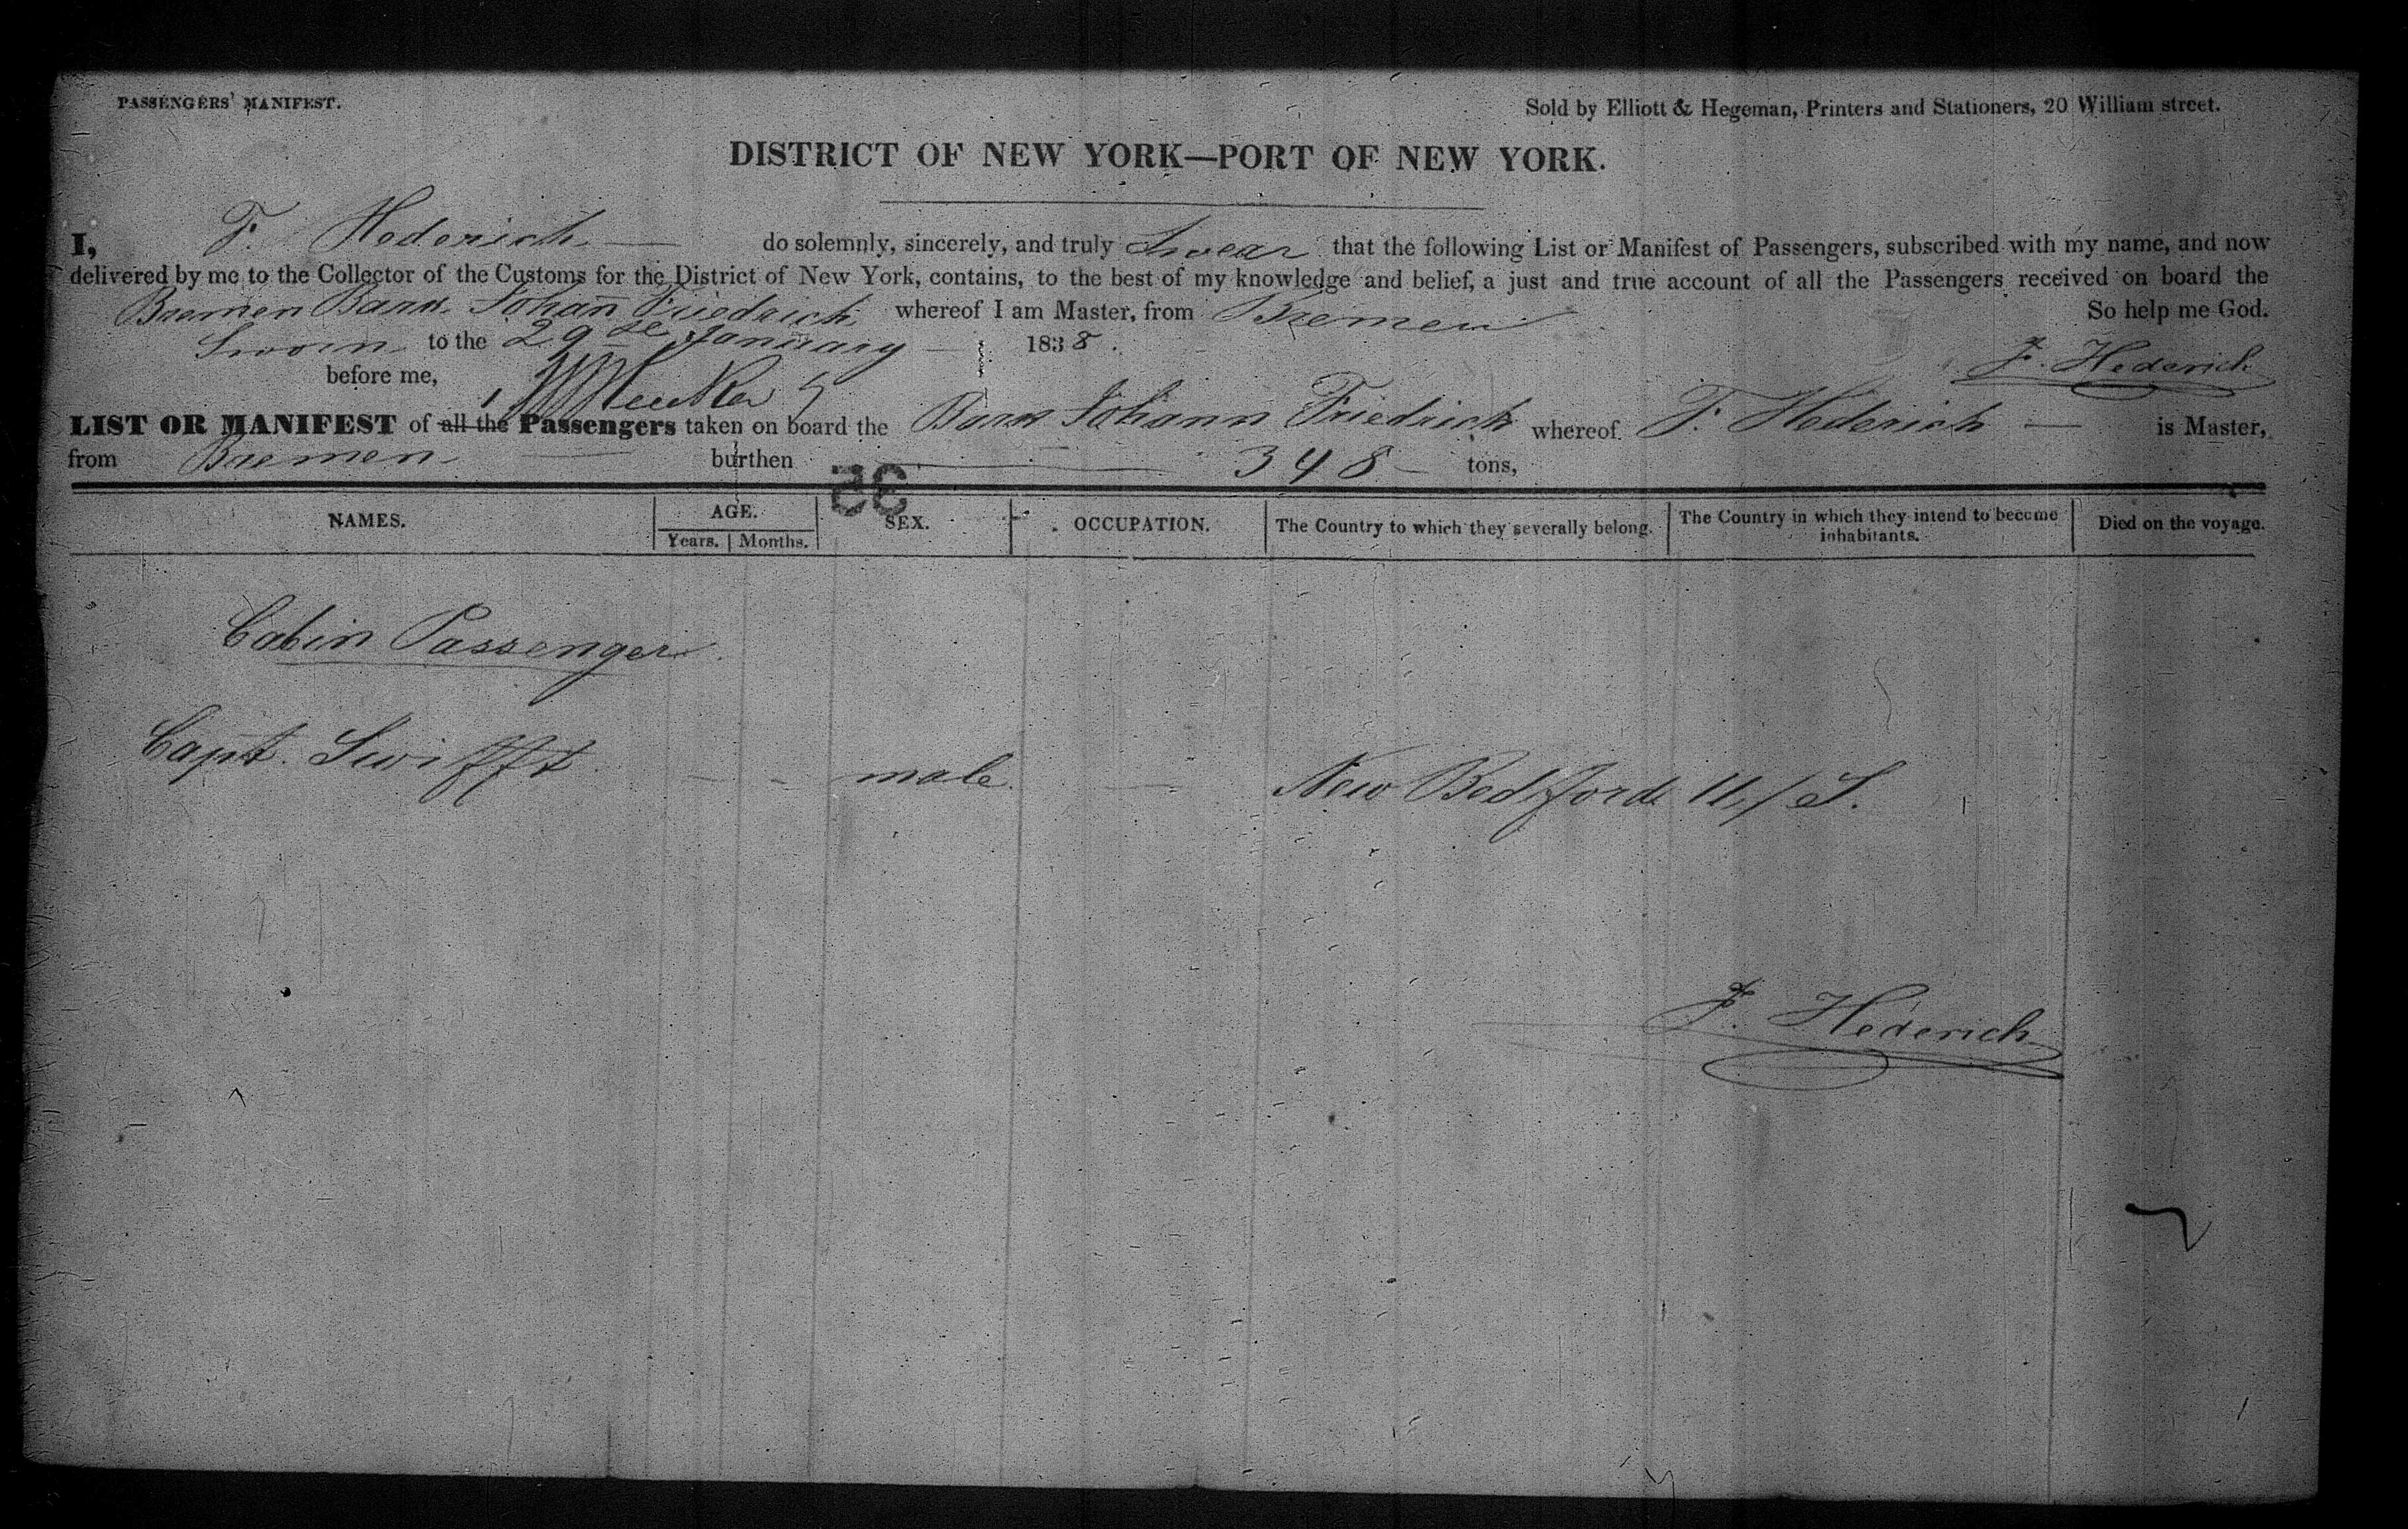 PASSENGERS' MANIFEST. Sold by Elliott & Hegeman, Printers and Stationers, 20 William street.
DISTRICT OF NEW YORK—PORT OF NEW YORK.
I, F. Hederich — do solemnly, sincerely, and truly Swear that the following List or Manifest of Passengers, subscribed with my name, and now
delivered by me to the Collector of the Customs for the District of New York, contains, to the best of my knowledge and belief, a just and true account of all the Passengers received on board the
Bremen Bark Johan Friedrich whereof I am Master, from Bremen So help me God.
Sworn to the 29 January 1838.
before me, F. Hederich
LIST OR MANIFEST of all the Passengers taken on board the Bark Johann Friedrich whereof F. Hederich — is Master,
from Bremen burthen 348 tons,
35
NAMES. AGE. SEX. OCCUPATION. The Country to which they severally belong. The Country in which they intend to become inhabitants. Died on the voyage.
Years. Months.
Cabin Passenger
Capt. Swifft - - male — New Bedford U/S.
F. Hederich